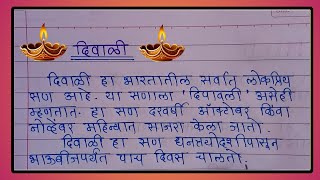 दिवाळी
दिवाळी हा भारतातील सर्वात लोकप्रिय
सण आहे. या सणाला 'दिपावली' असेही
म्हणतात. हा सण दरवर्षी ऑक्टोबर किंवा
नोव्हेंबर महिन्यात साजरा केला जातो.
दिवाळी हा सण धनत्रयोदशीपासून
भाऊबीजपर्यंत पाच दिवस चालतो.